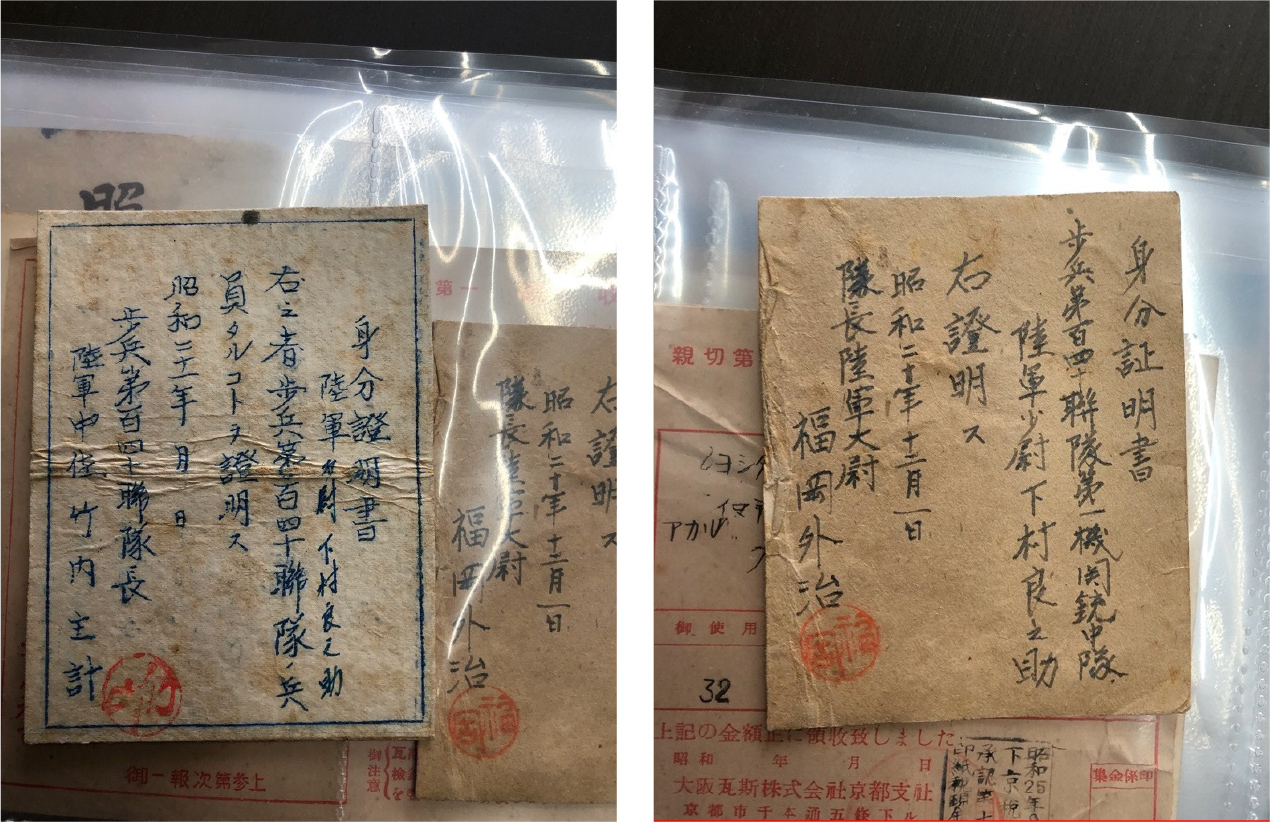 昭
身分證明書
陸軍少尉 下村良之助
右之者歩兵第百四十聯隊兵
員タルコトヲ證明ス
昭和二十一年 月 日
歩兵第百四十聯隊長
陸軍中佐 竹内主計
第一
収
右證明ス
昭和二十年十二月一日
隊長陸軍大尉
福岡外治
御一報次第参上
御注意
身分証明書
歩兵第百四十聯隊第一機関銃中隊
陸軍少尉下村良之助
右證明ス
昭和二十年十二月一日
隊長陸軍大尉
福岡外治
親切第
御使用
32
上記の金額正に領收致しました
昭和 年 月 日
大阪瓦斯株式会社京都支社
京都市下
集金係印
昭和25年
下京税
承認第十